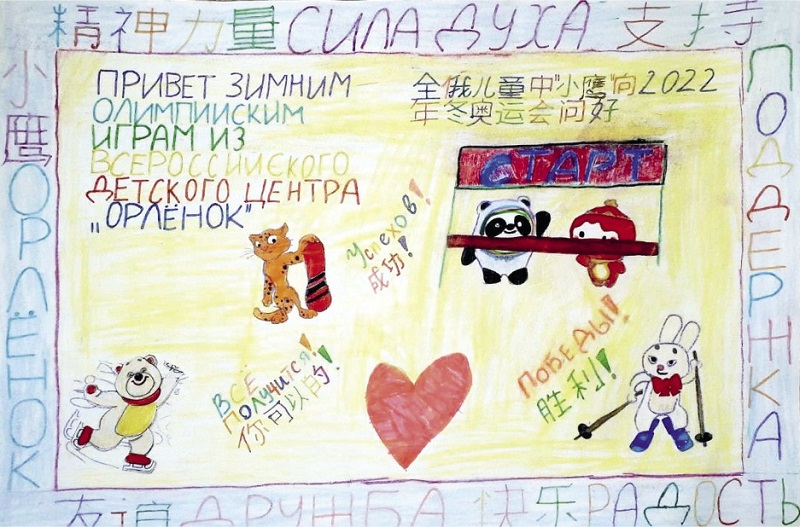 精神力量 СИЛА ДУХА 支持
小鹰
ОРЛЁНОК
ПРИВЕТ ЗИМНИМ
ОЛИМПИЙСКИМ
ИГРАМ ИЗ
ВСЕРОССИЙСКОГО
ДЕТСКОГО ЦЕНТРА
„ОРЛЁНОК"
全俄儿童中"小鹰"向2022
年冬奥运会问好
СТАРТ
Успехов!
成功!
ВСЁ
ПОЛУЧИТСЯ!
你可以的!
ПОБЕДЫ!
胜利!
ПОДДЕРЖКА
友谊 ДРУЖБА 快乐 РАДОСТЬ